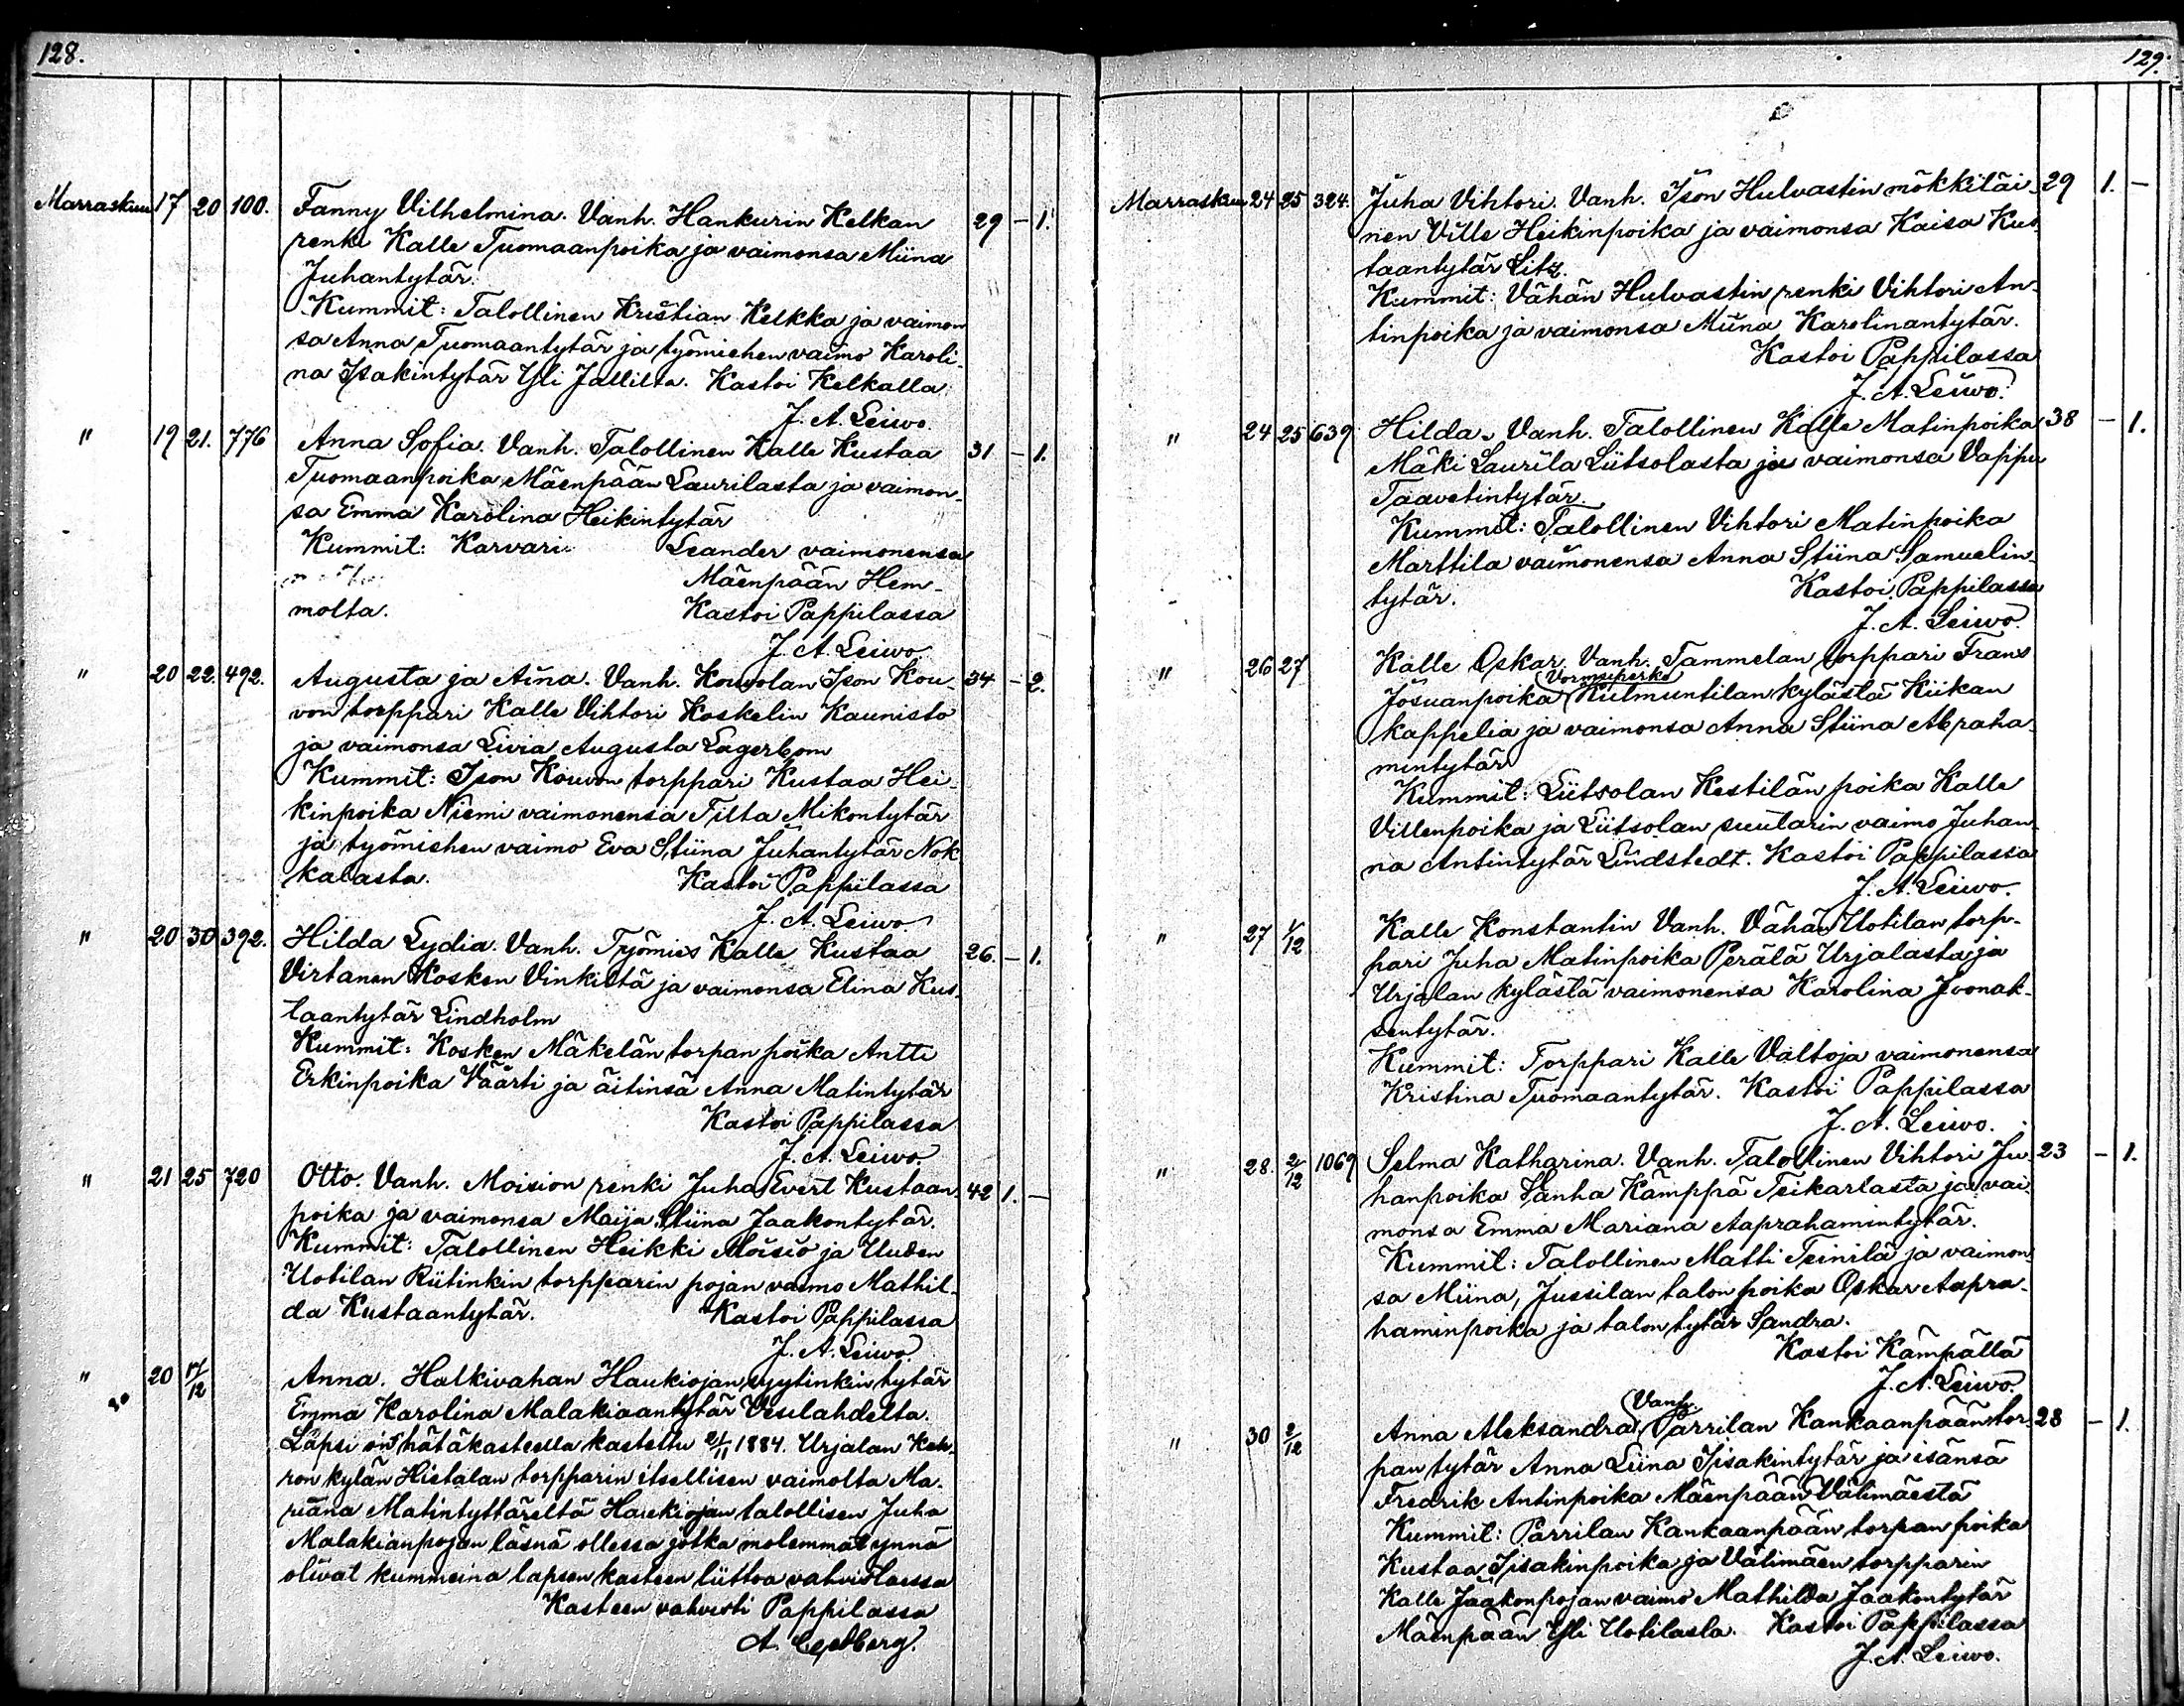 128.
Marraskuu 17 20 100. Fanny Vilhelmina. Vanh. Hankurin Kelkan 29 – 1.
renki Kalle Tuomaanpoika ja vaimonsa Miina
Juhantytär.
Kummit: Talollinen Kristian Kelkka ja vaimon
sa Anna Tuomaantytär ja työmiehen vaimo Karoli-
na Isakintytär Yli Jallilta. Kastoi Kelkalla
J. A. Leiwo.
" 19 21. 776 Anna Sofia. Vanh. Talollinen Kalle Kustaa 31 – 1.
Tuomaanpoika Mäenpään Laurilasta ja vaimon-
sa Emma Karolina Heikintytär
Kummit: Karvari Leander vaimonensa
Mäenpään Hem-
molta. Kastoi Pappilassa
J. A. Leiwo.
" 20 22. 492. Augusta ja Aina. Vanh. Kouvolan Ison Kou- 34 – 2.
von torppari Kalle Vihtori Koskelin Kaunisto
ja vaimonsa Livia Augusta Lagerbom
Kummit: Ison Kouvon torppari Kustaa Hei-
kinpoika Niemi vaimonensa Tilta Mikontytär
ja työmiehen vaimo Eva Stiina Juhantytär Nok
kalasta. Kastoi Pappilassa
J. A. Leiwo
" 20 30 392. Hilda Lydia. Vanh. Työmies Kalle Kustaa 26. – 1.
Virtanen Kosken Vinkiltä ja vaimonsa Elina Kus-
taantytär Lindholm
Kummit: Kosken Mäkelän torpan poika Antti
Erkinpoika Väärti ja äitinsä Anna Matintytär
Kastoi Pappilassa
J. A. Leiwo.
" 21 25 720 Otto. Vanh. Moision renki Juha Evert Kustaan- 42 1. –
poika ja vaimonsa Maija Stiina Jaakontytär.
Kummit: Talollinen Heikki Moisio ja Uuden
Uotilan Riitinkin torpparin pojan vaimo Mathil-
da Kustaantytär. Kastoi Pappilassa
J. A. Leiwo.
" 20 17/12 Anna. Halkivahan Haukiojan syytinkin tytär
Emma Karolina Malakiaantytär Vesilahdelta.
Lapsi on hätäkasteella kastettu 21/11 1884. Urjalan Keh-
ron kylän Hietalan torpparin itsellisen vaimolta Ma-
riana Matintyttäreltä Haukiojan talollisen Juha
Malakianpojan läsnä ollessa jotka molemmat ynnä
olivat kummeina lapsen kasteen liittoa vahvistaessa
Kasteen vahvisti Pappilassa
129.
Marraskuu 24 25 324. Juha Vihtori. Vanh. Ison Hulvastin mökkiläi- 29 1. –
nen Ville Heikinpoika ja vaimonsa Kaisa Kus-
taantytär Litz.
Kummit: Vähän Hulvastin renki Vihtori An-
tinpoika ja vaimonsa Miina Karolinantytär.
Kastoi Pappilassa
J. A. Leiwo.
" 24 25 639 Hilda. Vanh. Talollinen Kalle Matinpoika 38 – 1.
Mäki Laurila Liitsolasta ja vaimonsa Vappu
Taavetintytär.
Kummit: Talollinen Vihtori Matinpoika
Marttila vaimonensa Anna Stiina Samuelin-
tytär. Kastoi Pappilassa
J. A. Leiwo.
" 26 27 Kalle Oskar. Vanh. Tammelan torppari Frans
Josuanpoika Kiilmuntilan kylästä Kiikan
kappelia ja vaimonsa Anna Stiina Abraha-
mintytär
Kummit: Liitsolan Kestilän poika Kalle
Villenpoika ja Liitsolan suutarin vaimo Juhan-
na Antintytär Lindstedt. Kastoi Pappilassa
J. A. Leiwo.
" 27 1/12 Kalle Konstantin Vanh. Vähän Uotilan torp-
pari Juha Matinpoika Perälä Urjalasta ja
Urjalan kylästä vaimonensa Karolina Joonak-
sentytär.
Kummit: Torppari Kalle Valtoja vaimonensa
Kristina Tuomaantytär. Kastoi Pappilassa
J. A. Leiwo.
" 28. 2/12 1069 Selma Katharina. Vanh. Talollinen Vihtori Ju- 23 – 1.
hanpoika Vanha Kämppä Teikarlasta ja vai-
monsa Emma Mariana Aaprahamintytär.
Kummit: Talollinen Matti Teinilä ja vaimon-
sa Miina, Jussilan talon poika Oskar Aapra-
haminpoika ja talon tytär Sandra.
Kastoi Kämpällä
J. A. Leiwo.
" 30 2/12 Anna Aleksandra. Vanh. Parrilan Kankaanpään tor- 28 – 1.
pan tytär Anna Liina Iisakintytär ja isänsä
Fredrik Antinpoika Mäenpään Välimäestä
Kummit: Parrilan Kankaanpään torpan poika
Kustaa Iisakinpoika ja Välimäen torpparin
Kalle Jaakonpojan vaimo Mathilda Jaakontytär
Mäenpään Yli Uotilasta. Kastoi Pappilassa
J. A. Leiwo.